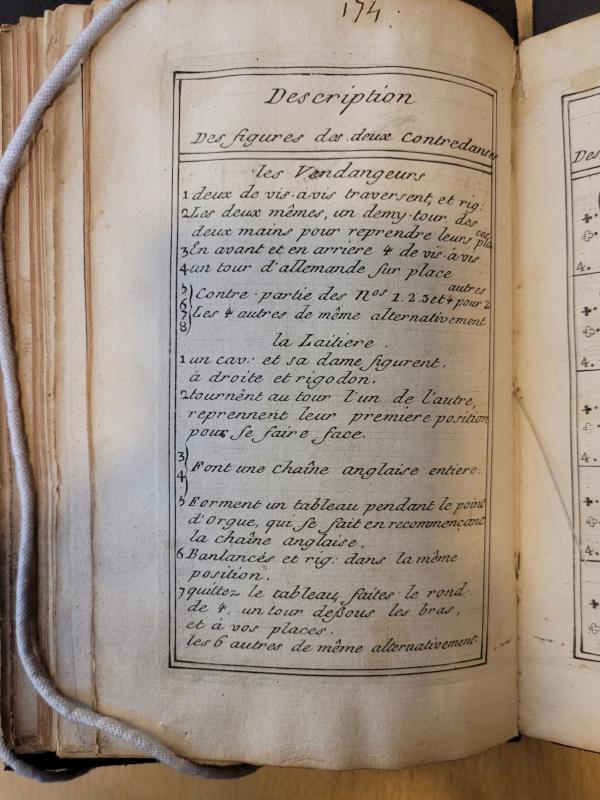 174.
Description
Des figures des deux Contredanses
les Vendangeurs
1 deux de vis-à-vis traversent, et rig:
2 Les deux mêmes, un demy-tour des
deux mains pour reprendre leurs places
3 En avant et en arriere 4 de vis-à-vis
4 un tour d'allemande sur place
5 6 Contre-partie des Nos 1.2.3 et 4 pour 2 autres
7 8 Les 4 autres de même alternativement
la Laitiere.
1 un cav: et sa dame figurent,
à droite et rigodon.
2 tournent autour l'un de l'autre,
reprennent leur premiere position
pour se faire face.
3 4 Font une chaîne anglaise entiere.
5 Forment un tableau pendant le point
d'Orgue, qui se fait en recommençant
la chaîne anglaise.
6 Banlancés et rig: dans la même
position.
7 quittez le tableau, faites le rond
de 4, un tour dessous les bras,
et à vos places.
les 6 autres de même alternativement.
Des
4.
4.
4.
4.